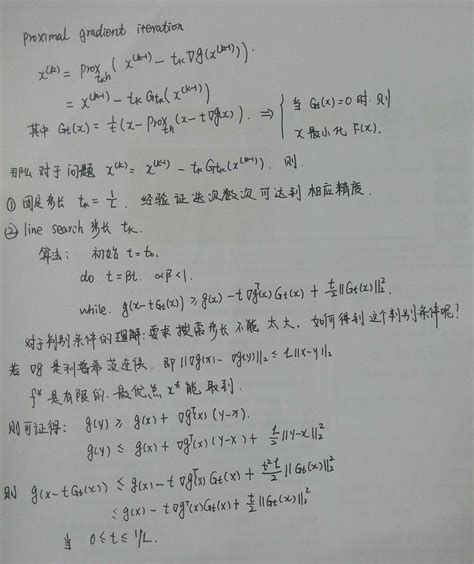 Proximal gradient iteration
x^(k) = prox_{t_k h} ( x^(k-1) - t_k ∇g(x^(k-1)) ).
= x^(k-1) - t_k G_{t_k} (x^(k-1))
其中 G_t(x) = 1/t (x - prox_{th} (x - t∇g(x)). ⇒ { 当 G_t(x)=0 时. 则
x 最小化 F(x).
那么 对于 问题 x^(k) = x^(k-1) - t_k G_{t_k}(x^(k-1)). 则.
① 固定步长 t_k = 1/L. 经验证迭代数次可达到相应精度.
② line search 步长 t_k.
算法: 初始 t = t_0.
do t = βt. 0<β<1.
while. g(x-tG_t(x)) ≥ g(x) - t∇g^T(x) G_t(x) + t/2 ||G_t(x)||_2^2.
对于判别条件的理解: 要求搜索步长不能太大. 如何得到这个判别条件呢?
若 ∇g 是利普希茨连续. 即 ||∇g(x) - ∇g(y)||_2 ≤ L||x-y||_2
f* 是有限的. 最优点 x* 能取到.
则可证得: g(y) ≥ g(x) + ∇g^T(x) (y-x).
g(y) ≤ g(x) + ∇g^T(x) (y-x) + L/2 ||y-x||_2^2
则 g(x-tG_t(x)) ≤ g(x) - t∇g^T(x) G_t(x) + t^2L/2 ||G_t(x)||_2^2
≤ g(x) - t∇g^T(x) G_t(x) + t/2 ||G_t(x)||_2^2
当 0≤t≤1/L.